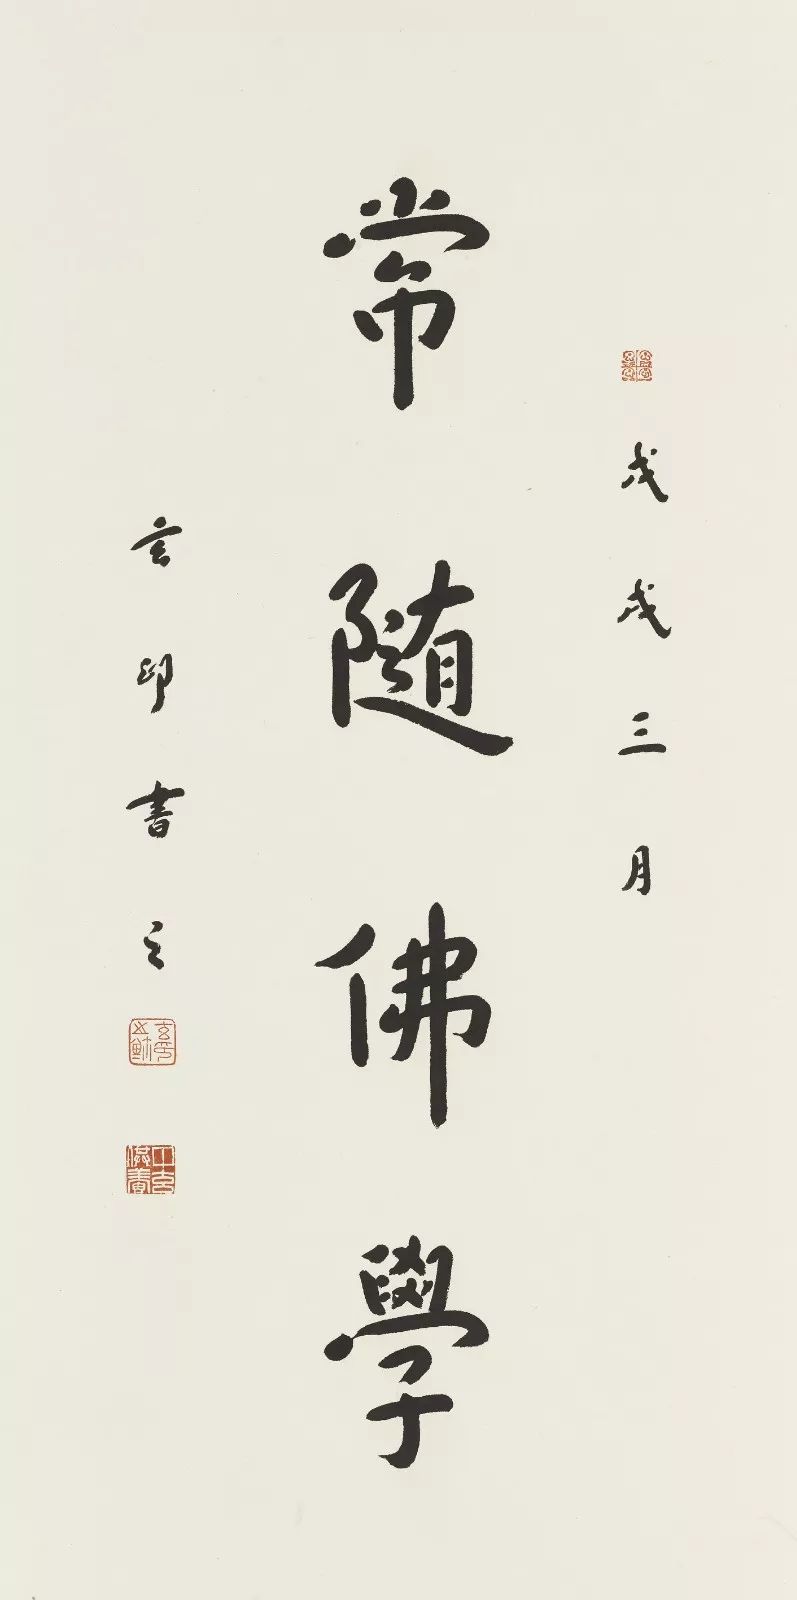 戊戌三月
常隨佛學
玄印書之